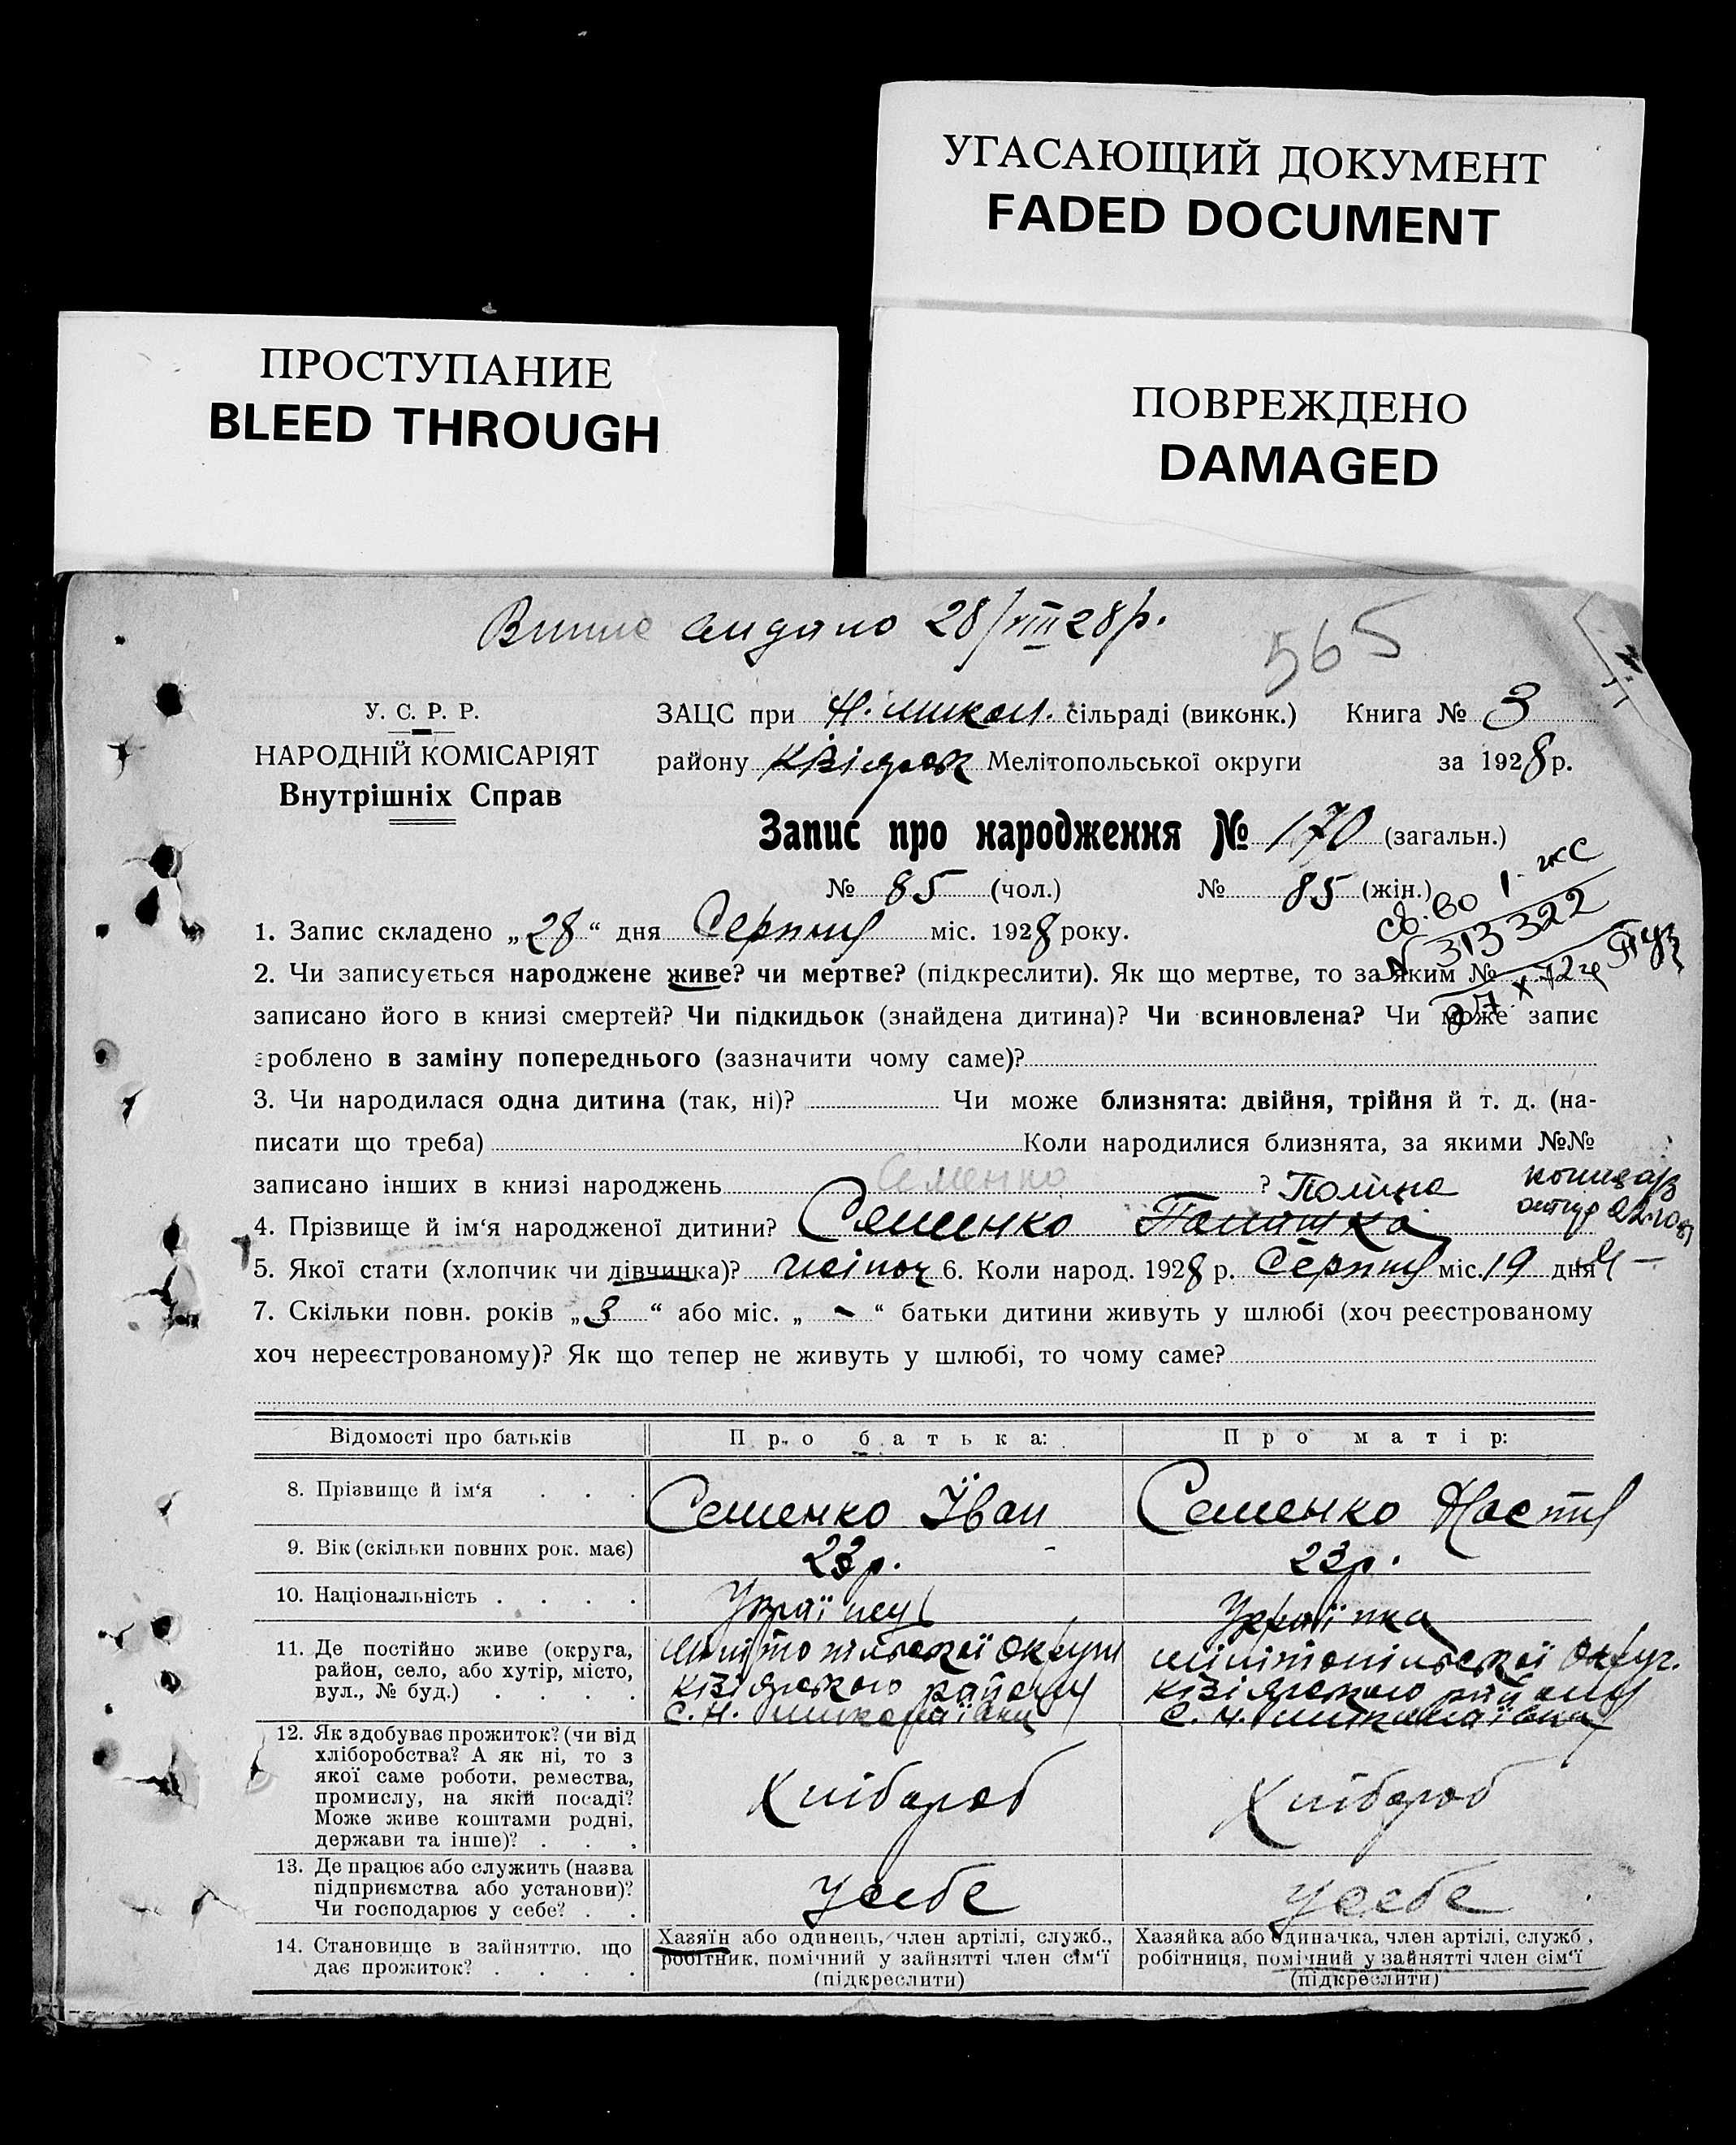 УГАСАЮЩИЙ ДОКУМЕНТ
FADED DOCUMENT
ПРОСТУПАНИЕ
BLEED THROUGH
ПОВРЕЖДЕНО
DAMAGED
28/VIII 28р.
565
У. С. Р. Р.
НАРОДНІЙ КОМІСАРІЯТ
Внутрішніх Справ
ЗАЦС при Н. микол. сільраді (виконк.) Книга № 3
району Мелітопольської округи за 1928 р.
Запис про народження № 170 (загальн.)
№ 85 (чол.) № 85 (жін.)
св-во
N 313322
1. Запис складено „28“ дня Серпня міс. 1928 року.
2. Чи записується народжене живе? чи мертве? (підкреслити). Як що мертве, то за яким №
записано його в книзі смертей? Чи підкидьок (знайдена дитина)? Чи всиновлена? Чи може запис
зроблено в заміну попереднього (зазначити чому саме)?
3. Чи народилася одна дитина (так, ні)? Чи може близнята: двійня, трійня й т. д. (на-
писати що треба) Коли народилися близнята, за якими №№
Семенко
записано інших в книзі народжень ? Поліна
4. Прізвище й ім‘я народженої дитини? Семенко
5. Якої стати (хлопчик чи дівчинка)? жіноч 6. Коли народ. 1928 р. Серпня міс. 19 дня
7. Скільки повн. років „3“ або міс. „-“ батьки дитини живуть у шлюбі (хоч реєстрованому
хоч нереєстрованому)? Як що тепер не живуть у шлюбі, то чому саме?
Відомості про батьків Про батька: Про матір:
8. Прізвище й ім‘я . . . Семенко Їван Семенко Настя
9. Вік (скільки повних рок. має) 23р. 23р.
10. Національність . . . . Українець Українка
11. Де постійно живе (округа,
район, село, або хутір, місто,
вул., № буд.) . . . .
12. Як здобуває прожиток? (чи від
хліборобства? А як ні, то з
якої саме роботи, ремества,
промислу, на якій посаді?
Може живе коштами родні,
держави та інше)? . . .
Хлібороб Хлібороб
13. Де працює або служить (назва
підприємства або установи)?
Чи господарює у себе? . .
У себе У себе
14. Становище в зайняттю, що
дає прожиток? . . . .
Хазяїн або одинець, член артілі, служб.,
робітник, помічний у зайнятті член сім‘ї
(підкреслити)
Хазяйка або одиначка, член артілі, служб.,
робітниця, помічний у зайнятті член сім‘ї
(підкреслити)